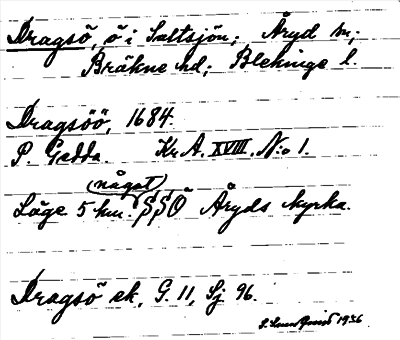 Dragsö, ö i Saltsjön; Åryd sn;
Bräkne hd; Blekinge l.
Dragsöö, 1684.
P. Gedda. Kr A. XVIII. N:o 1.
(något)
Läge 5 km. SSO Åryds kyrka.
Dragsö ek. G. 11, Sj 96.
1936